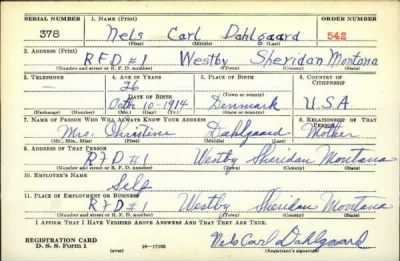 SERIAL NUMBER 1. NAME (Print) ORDER NUMBER
378 Nels Carl Dahlgaard 542
(First) (Middle) (Last)
2. ADDRESS (Print)
RFD #1 Westby Sheridan Montana
(Number and street or R. F. D. number) (Town) (County) (State)
3. TELEPHONE 4. AGE IN YEARS 5. PLACE OF BIRTH 6. COUNTRY OF CITIZENSHIP
26
DATE OF BIRTH (Town or county)
Octh 10-1914 Denmark U.S.A
(Exchange) (No.) (Mo.) (Day) (Yr.) (State or country)
7. NAME OF PERSON WHO WILL ALWAYS KNOW YOUR ADDRESS 8. RELATIONSHIP OF THAT PERSON
Mrs. Christine Dahlgaard Mother
(Mr., Mrs., Miss) (First) (Middle) (Last)
9. ADDRESS OF THAT PERSON
RFD #1 Westby Sheridan Montana
(Number and street or R. F. D. number) (Town) (County) (State)
10. EMPLOYER'S NAME
Self
11. PLACE OF EMPLOYMENT OR BUSINESS
RFD #1 Westby Sheridan Montana
(Number and street or R. F. D. number) (Town) (County) (State)
I AFFIRM THAT I HAVE VERIFIED ABOVE ANSWERS AND THAT THEY ARE TRUE.
REGISTRATION CARD
D. S. S. Form 1 (over) Nels Carl Dahlgaard
(Registrant's signature)